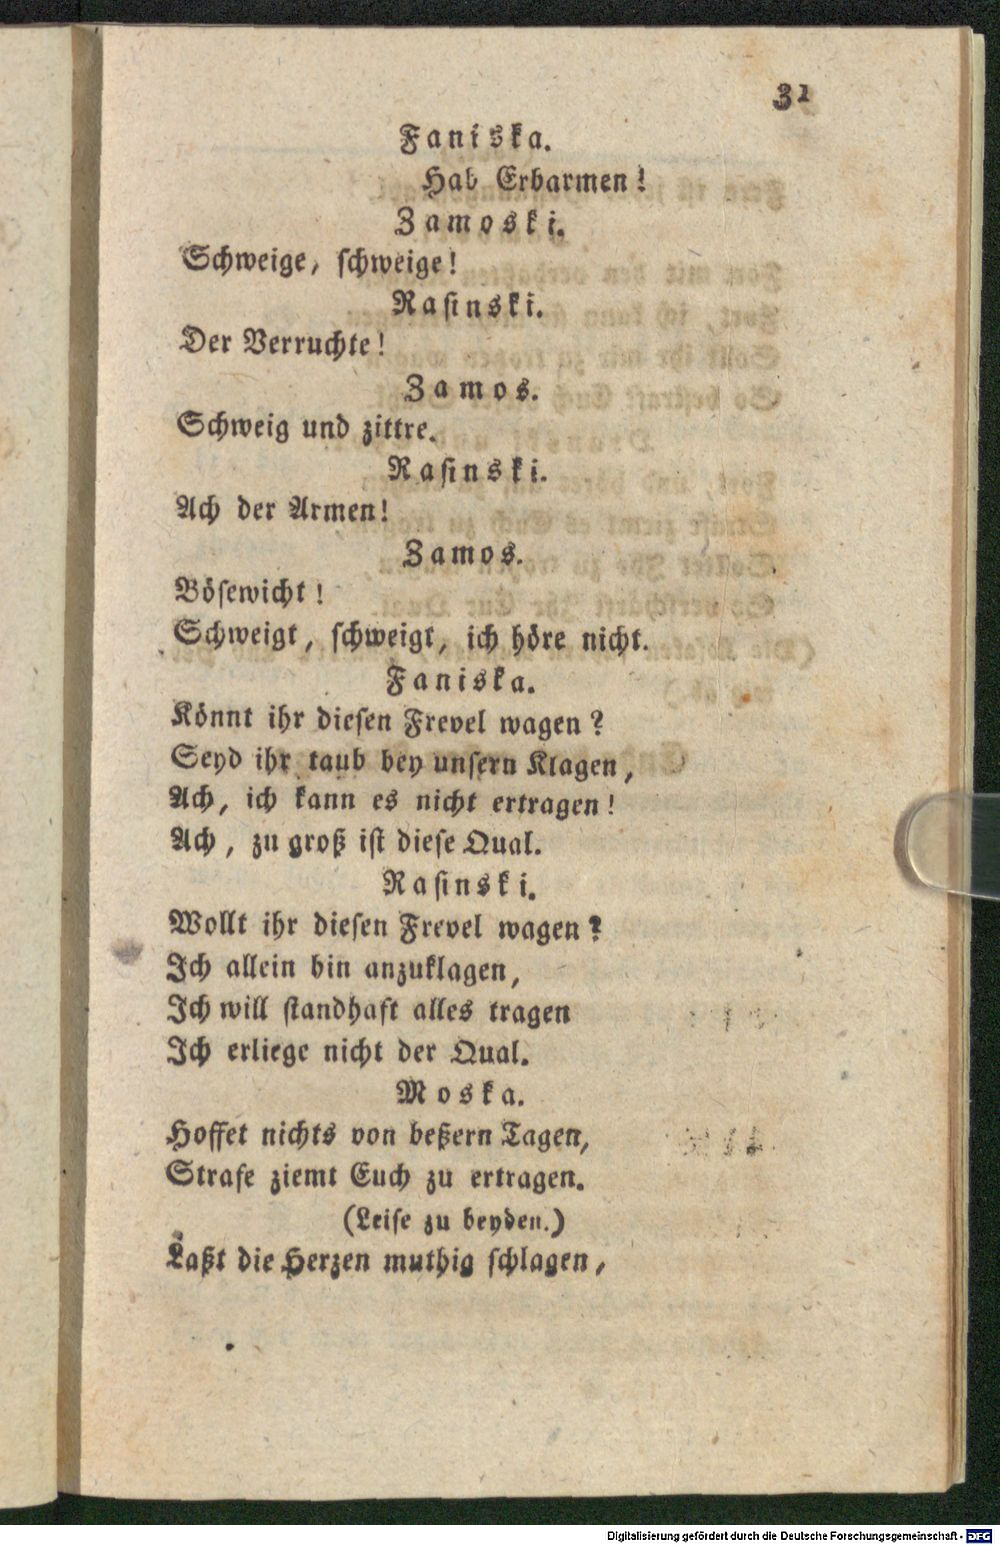 31
Faniska.
Hab Erbarmen!
Zamoski.
Schweige, schweige!
Rasinski.
Der Verruchte!
Zamos.
Schweig und zittre.
Rasinski.
Ach der Armen!
Zamos.
Bösewicht!
Schweigt, schweigt, ich höre nicht.
Faniska.
Könnt ihr diesen Frevel wagen?
Seyd ihr taub bey unsern Klagen,
Ach, ich kann es nicht ertragen!
Ach, zu groß ist diese Qual.
Rasinski.
Wollt ihr diesen Frevel wagen?
Ich allein bin anzuklagen,
Ich will standhaft alles tragen
Ich erliege nicht der Qual.
Moska.
Hoffet nichts von beßern Tagen,
Strafe ziemt Euch zu ertragen.
(Leise zu beyden.)
Laßt die Herzen muthig schlagen,
Digitalisierung gefördert durch die Deutsche Forschungsgemeinschaft - DFG